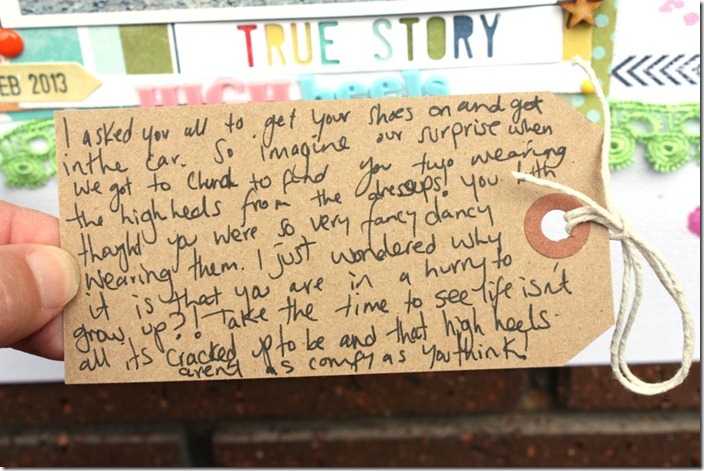 TRUE STORY
FEB 2013
HIGH heels
I asked you all to get your shoes on and get
in the car. So imagine our surprise when
we got to Church to find you two wearing
the high heels from the dressups! You both
thought you were so very fancy dancy
wearing them. I just wondered why
it is that you are in a hurry to
grow up?! Take the time to see life isn't
all its cracked up to be and that high heels
arent as comfy as you think.